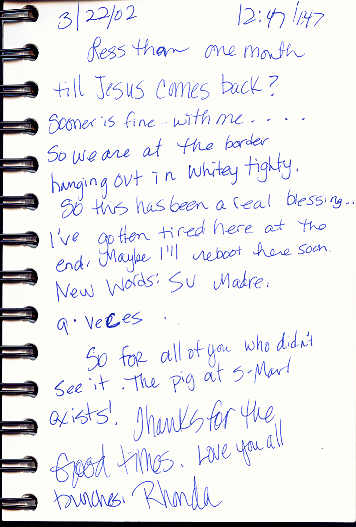 3/22/02 12:47/147
Less than one month
till Jesus comes back?
Sooner is fine with me....
So we are at the border
hanging out in whitey tighty.
So this has been a real blessing..
I've gotten tired here at the
end. Maybe I'll reboot here soon.
New Words: Su Madre.
a. veces.
So for all of you who didn't
see it. The pig at S-Mart
exists! Thanks for the
Good times. Love you all
bunches. Rhonda